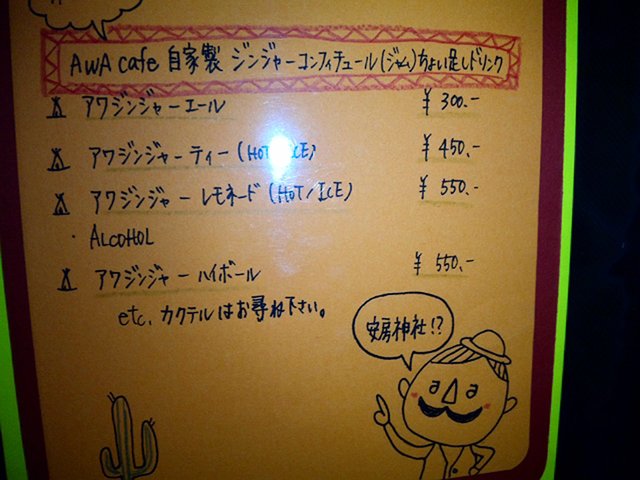 AWA cafe 自家製 ジンジャーコンフィチュール(ジャム)ちょい足しドリンク
アワジンジャーエール ¥300.-
アワジンジャーティー(HOT/ICE) ¥450.-
アワジンジャーレモネード(HOT/ICE) ¥550.-
・ALCOHOL
アワジンジャーハイボール ¥550.-
etc. カクテルはお尋ね下さい。
安房神社!?